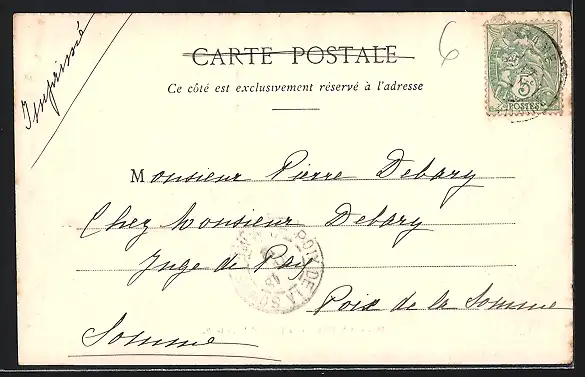 Imprimé
CARTE POSTALE
6
Ce côté est exclusivement réservé à l'adresse
5
POSTES
Monsieur Pierre Debary
Chez Monsieur Debary
Juge de Paix
POIX DE LA SOMME
Poix de la Somme
Somme